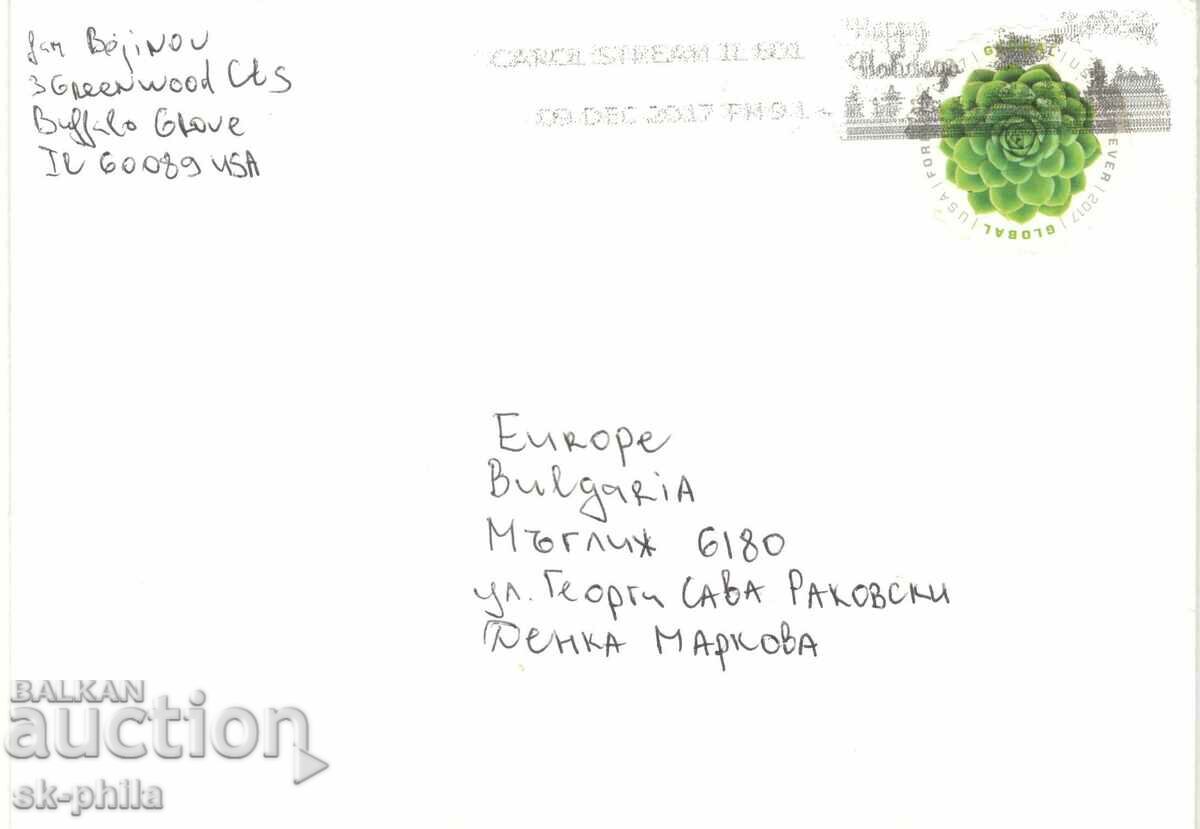 Jan Bojinov
3 Greenwood Cts
Buffalo Grove
IL 60089 USA
CAROL STREAM IL 601
09 DEC 2017 PM 9 L
Happy
Holidays
GLOBAL | USA | FOREVER | 2017 | GLOBAL | USA | FOREVER | 2017
Europe
Bulgaria
Мъглиж 6180
ул. Георги Сава Раковски
Денка Маркова
BALKAN
auction
sk-phila